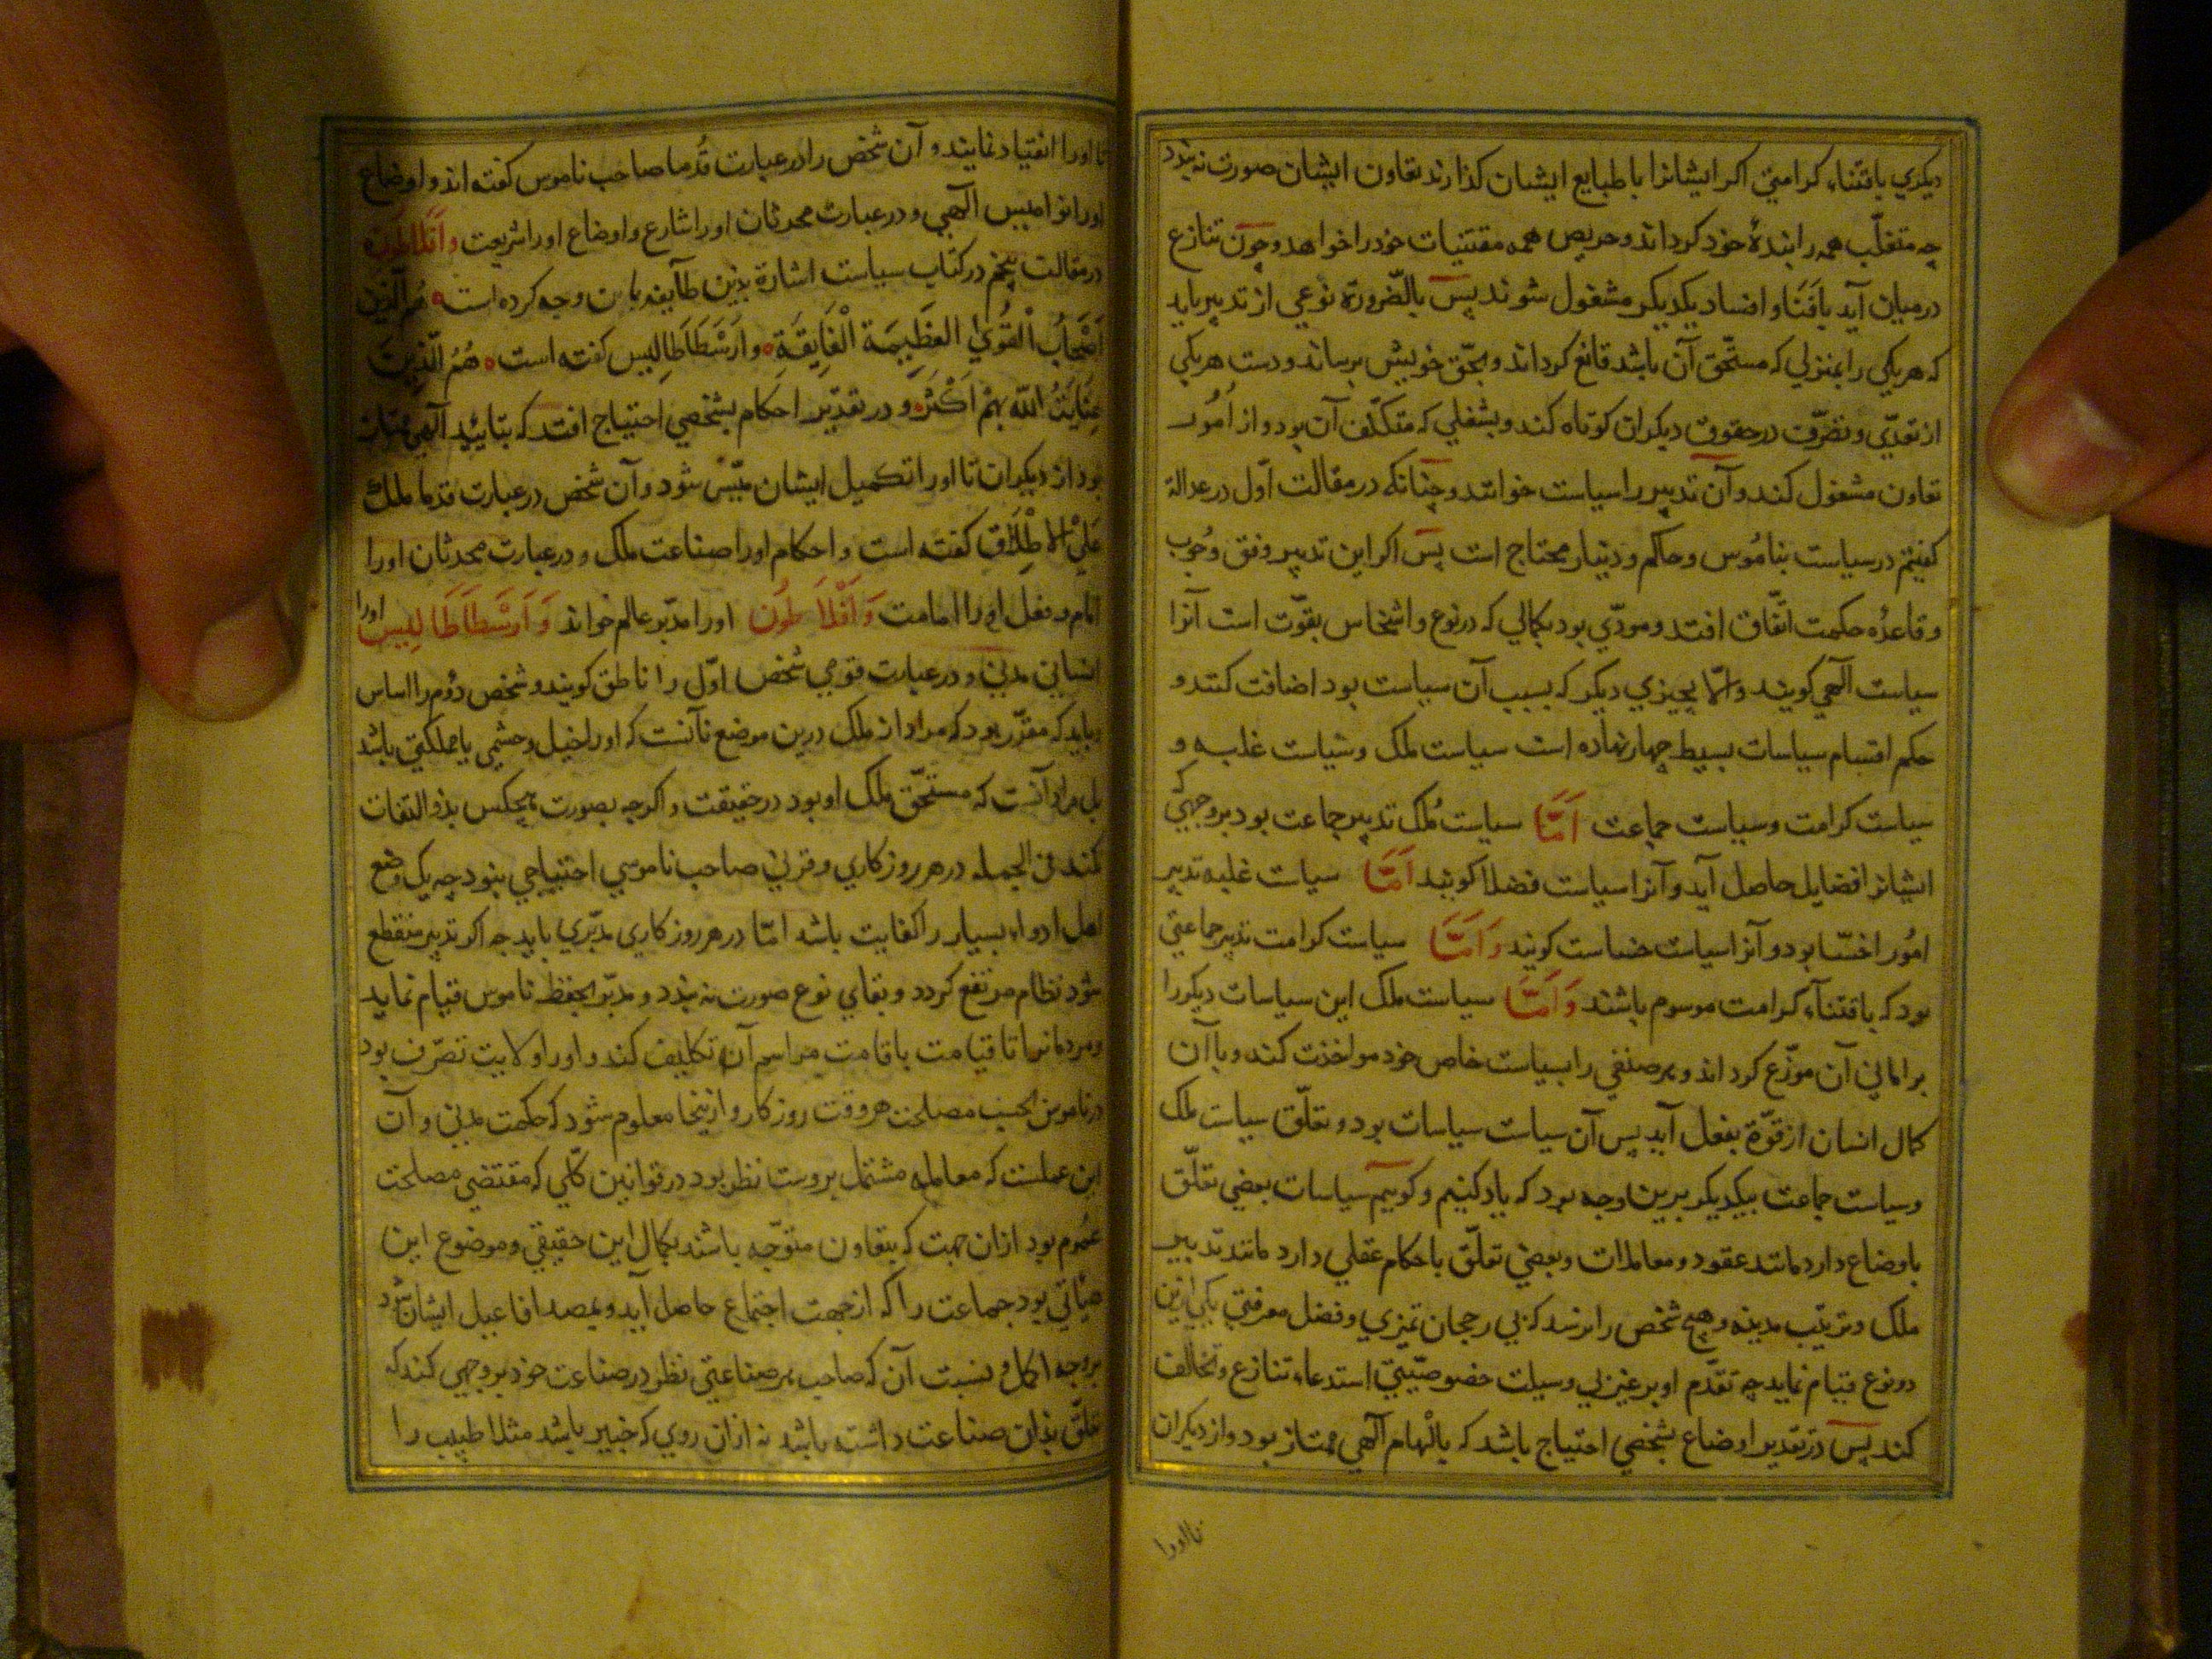 دیکری باقتناء کرامتی اکر ایشانرا با طبایع ایشان کذارند تعاون ایشان صورت نه بندد
چه متغلّب همه را بندهٔ خود کرداند و حریص همه مقتنیات خود را خواهد و چون تنازع
در میان آید بافنا و افساد یکدیکر مشغول شوند پس بالضّرورة نوعی از تدبیر باید
که هر یکی را بمنزلی که مستحّق آن باشد قانع کرداند و بحّق خویش برساند و دست هر یکی
از تعدّی و تصّرف در حقوق دیکران کوتاه کند و بشغلی که متکلّف آن بود و از اُمُور
تعاون مشغول کند و آن تدبیر را سیاست خوانند و چنانکه در مقالت اوّل در عدالة
کفتیم در سیاست بنامُوس و حاکم و دینار محتاج است پس اکر این تدبیر وفق وجُوب
و قاعدهٔ حکمت اتّفاق افتد و مودّی بود بکمالی که در نوع و اشخاص بقوّت است آنرا
سیاست آلهی کویند و الّا بچیزی دیکر که بسبب آن سیاست بود اضافت کنند و
حکم اقسام سیاسات بسیط چهار نهاده است سیاست ملک و سیاست غلبه و
سیاست کرامت و سیاست جماعت اَمَّا سیاست مُلک تدبیر جماعت بود بر وجهی که
ایشانرا فضایل حاصل آید و آنرا سیاست فضلا کویند اَمَّا سیاست غلبه تدبیر
امُور اخسّا بود و آنرا سیاست خساست کویند وَاَمَّا سیاست کرامت تدبیر جماعتی
بود که باقتناء کرامت موسوم باشند وَاَمَّا سیاست ملک این سیاسات دیکر را
بر اهالی آن موزّع کرداند و هر صنفی را بسیاست خاص خود مواخذت کند و با آن
کمال انسان از قوّة بفعل آید پس آن سیاست سیاسات بود و تعلّق سیاست ملک
و سیاست جماعت بیکدیکر برین وجه بود که یاد کنیم و کوییم سیاسات بعضی تعلّق
باوضاع دارد مانند عقود و معاملات و بعضی تعلّق باحکام عقلی دارد مانند تدبیر
ملک و ترتیب مدینه و هیچ شخص را نرسد که بی رجحان تمیزی و فضل معرفتی بیکی ازین
دو نوع قیام نماید چه تقدّم او بر غیر بی وسیلت خصوصیّتی استدعاء تنازع و تخالف
کند پس در تقدیر اوضاع بشخصی احتیاج باشد که بالهام آلهی ممتاز بود و از دیکران
تا اورا
تا اورا انقیاد نمایند و آن شخص را در عبارت قُدما صاحب ناموس کفته اند و اوضاع
اورا نوامیس آلهی و در عبارت محدثان اورا شارع و اوضاع اورا شریعت وَاَفلاطون
در مقالت پنجم در کتاب سیاست اشارة بدین طایفه باین وجه کرده است هُم الّذین
اَصْحَابُ الْقُوَی الْعَظِیمَة الْفَایِقَةِ وَاَرَسْطَاطَالِیس کفته است هُمُ الَّذِینَ
عِنَایَتُ اللّه بِهْم اَکْثَرْ و در تقدیر احکام بشخصی احتیاج افتد که بتایید آلهی ممتاز
بود از دیکران تا اورا تکمیل ایشان میّسر شود و آن شخص در عبارت قدما ملک
عَلَی الاِطْلَاق کفته است و احکام اورا صناعت ملک و در عبارت محدثان اورا
امام و فعل اورا امامت وَاَفْلَاطُون اورا مدبّر عالم خواند وَاَرَسْطَاطَالِیس اورا
انسانی مدنی و در عبارت قومی شخص اوّل را ناطق کویند و شخص دوُم را اساس
و باید که مقرّر بود که مراد از ملک درین موضع نه آنست که اورا خیل و حشمی یا مملکتی باشد
بل مراد آنست که مستحّق ملک او بود در حقیقت و اکرچه بصورت هیچکس بدو التفات
نکند فی الجمله در هر روزکاری و قرنی صاحب ناموسی احتیاجی نبود چه یک وضع
اهل ادوار بسیار را کفایت باشد امّا در هر روزکاری مدبّری باید چه اکر تدبیر منقطع
شود نظام مرتفع کردد و بقای نوع صورت نه بندد و مدبّر بحفظ ناموس قیام نماید
و مردمانرا تا قیامت باقامت مراسم آن تکلیف کند و اورا ولایت تصرّف بود
در ناموس بحسب مصلحت هر وقت روزکار و ازینجا معلوم شود که حکمت مدنی و آن
این علمست که معامله مشتمل بروست نظر بود در قوانین کلّی که مقتضی مصلحت
عمُوم بود ازان جهت که بتعاون متوّجه باشند بکمال این حقیقی و موضوع این
هیأتی بود جماعت را که از جهت اجتماع حاصل آید و بمصدر افاعیل ایشان شود
بر وجه اکمل و نسبت آن که صاحب هر صناعتی نظر در صناعت خود بر وجهی کند که
تعلّق بدان صناعت داشته باشد نه ازان روی که خیر باشد مثلا طبیب را